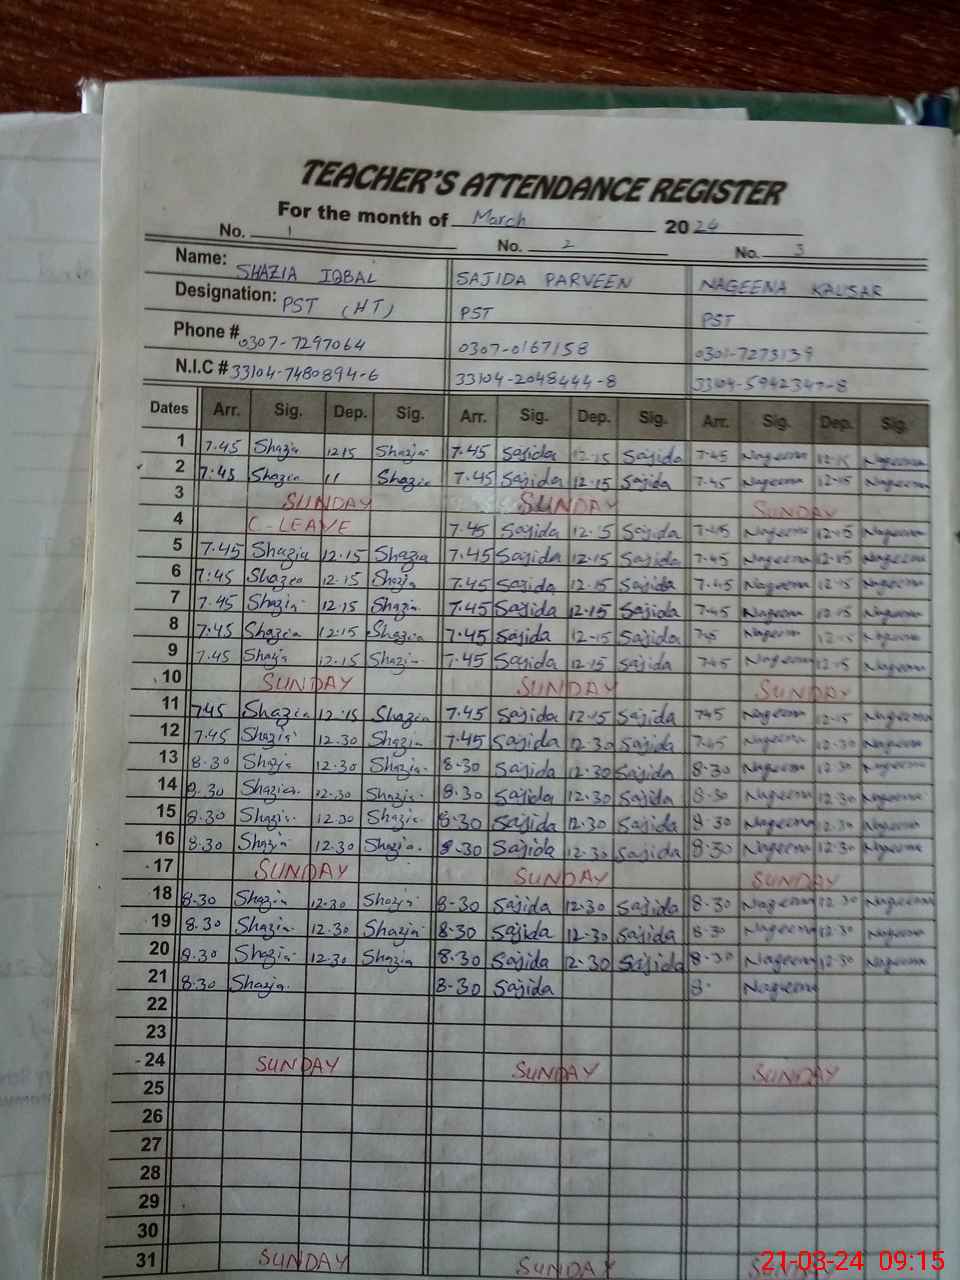 TEACHER'S ATTENDANCE REGISTER
For the month of March 2024
No. 1 No. 2 No. 3
Name: SHAZIA IQBAL SAJIDA PARVEEN NAGEENA KAUSAR
Designation: PST (HT) PST PST
Phone # 0307-7297064 0307-0167158 0301-7273139
N.I.C # 33104-7480894-6 33104-2048444-8 33104-5942347-8
Dates Arr. Sig. Dep. Sig. Arr. Sig. Dep. Sig. Arr. Sig. Dep. Sig.
1 7.45 Shazia 12.15 Shazia 7.45 Sajida 12.15 Sajida 7.45 Nageena 12.15 Nageena
2 7.45 Shazia 11 Shazia 7.45 Sajida 12.15 Sajida 7.45 Nageena 12.15 Nageena
3 SUNDAY SUNDAY SUNDAY
4 C-LEAVE 7.45 Sajida 12.15 Sajida 7.45 Nageena 12.15 Nageena
5 7.45 Shazia 12.15 Shazia 7.45 Sajida 12.15 Sajida 7.45 Nageena 12.15 Nageena
6 7:45 Shazia 12.15 Shazia 7.45 Sajida 12.15 Sajida 7.45 Nageena 12.15 Nageena
7 7.45 Shazia 12.15 Shazia 7.45 Sajida 12.15 Sajida 7.45 Nageena 12.15 Nageena
8 7:45 Shazia 12.15 Shazia 7.45 Sajida 12.15 Sajida 7.45 Nageena 12.15 Nageena
9 7.45 Shazia 12.15 Shazia 7.45 Sajida 12.15 Sajida 7.45 Nageena 12.15 Nageena
10 SUNDAY SUNDAY SUNDAY
11 7.45 Shazia 12.15 Shazia 7.45 Sajida 12.15 Sajida 7.45 Nageena 12.15 Nageena
12 7.45 Shazia 12.30 Shazia 7.45 Sajida 12.30 Sajida 7.45 Nageena 12.30 Nageena
13 8.30 Shazia 12.30 Shazia 8.30 Sajida 12.30 Sajida 8.30 Nageena 12.30 Nageena
14 8.30 Shazia 12.30 Shazia 8.30 Sajida 12.30 Sajida 8.30 Nageena 12.30 Nageena
15 8.30 Shazia 12.30 Shazia 8.30 Sajida 12.30 Sajida 8.30 Nageena 12.30 Nageena
16 8.30 Shazia 12.30 Shazia 8.30 Sajida 12.30 Sajida 8.30 Nageena 12.30 Nageena
17 SUNDAY SUNDAY SUNDAY
18 8.30 Shazia 12.30 Shazia 8.30 Sajida 12.30 Sajida 8.30 Nageena 12.30 Nageena
19 8.30 Shazia 12.30 Shazia 8.30 Sajida 12.30 Sajida 8.30 Nageena 12.30 Nageena
20 8.30 Shazia 12.30 Shazia 8.30 Sajida 12.30 Sajida 8.30 Nageena 12.30 Nageena
21 8.30 Shazia 8.30 Sajida 8. Nageena
22
23
24 SUNDAY SUNDAY SUNDAY
25
26
27
28
29
30
31 SUNDAY SUNDAY
21-03-24 09:15